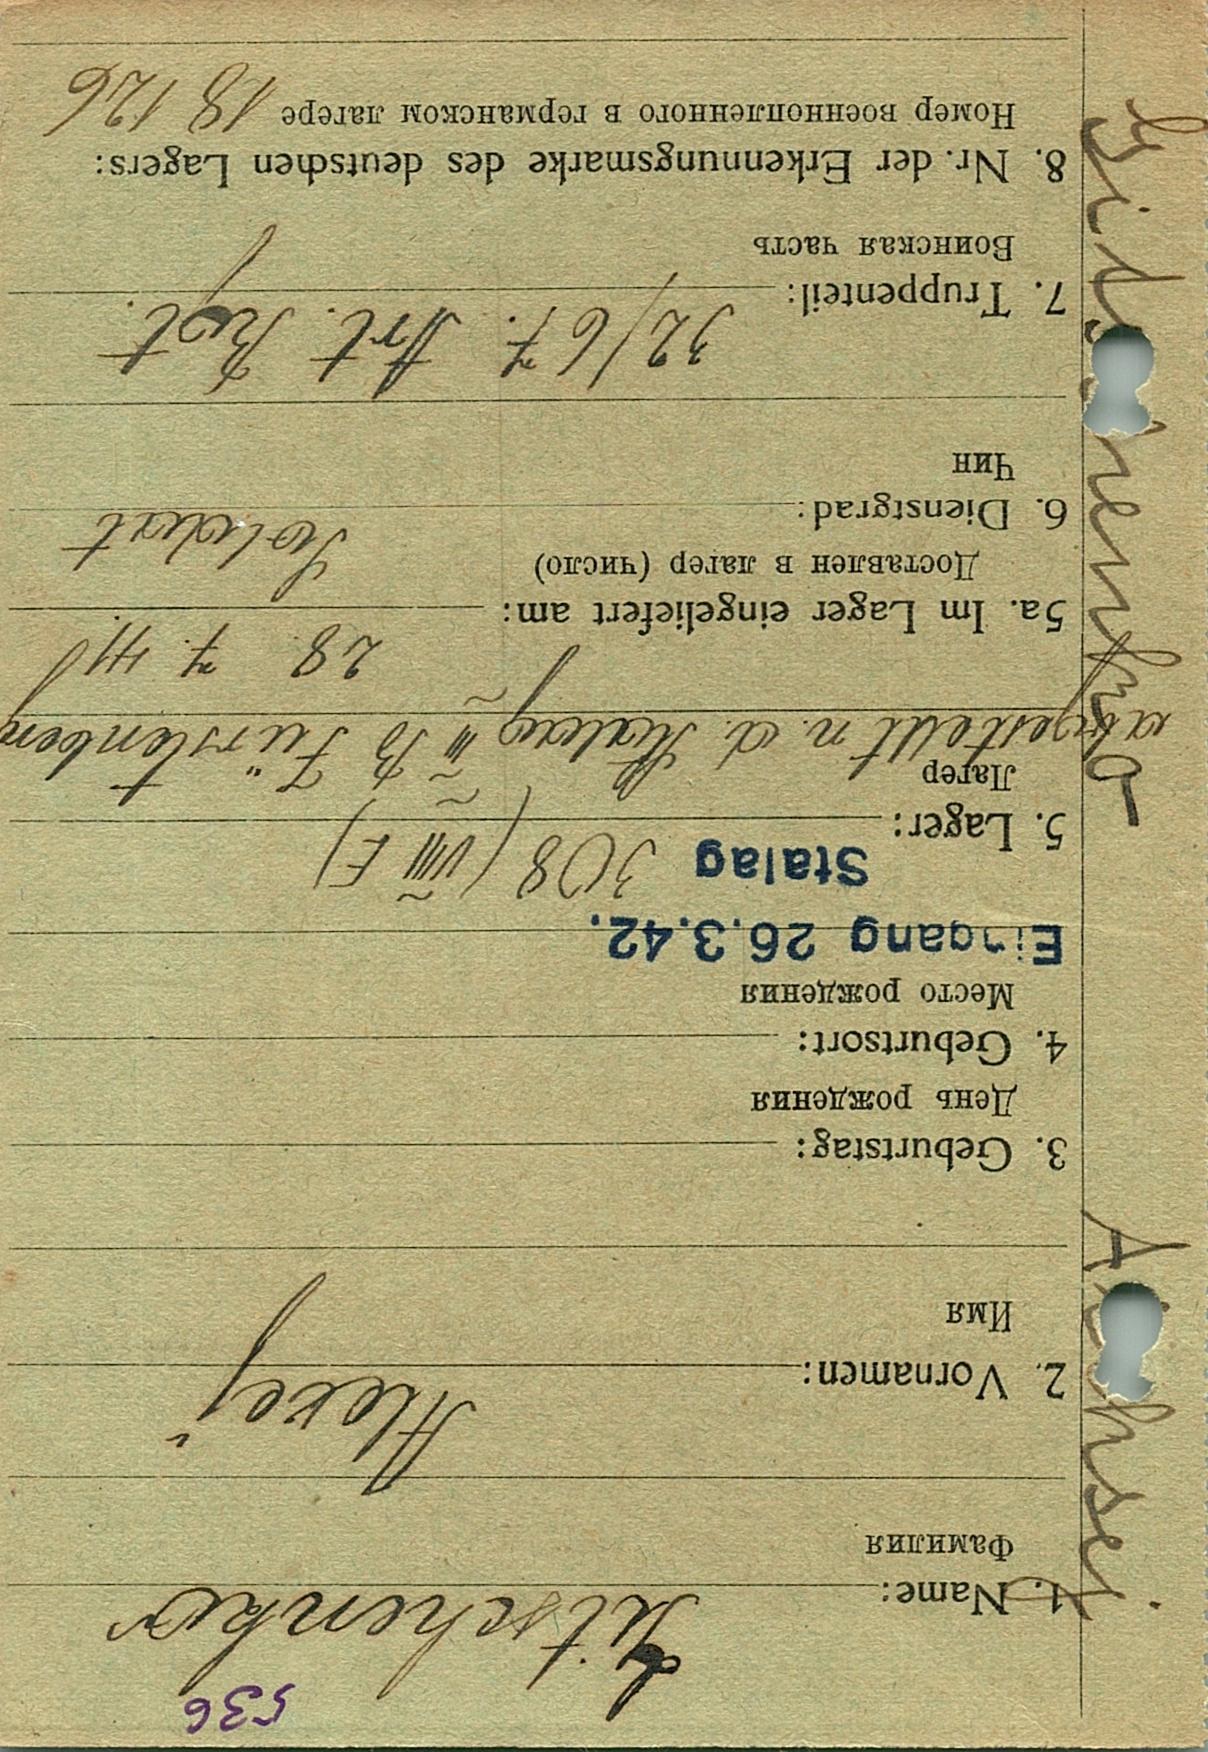 536
1. Name: Litschenko
Фамилия
2. Vornamen: Alexej
Имя
3. Geburtstag:
День рождения
4. Geburtsort:
Место рождения
Eingang 26.3.42.
Stalag 308 (VIII E)
5. Lager:
Лагер
abgestellt n. d. Stalag III B Fürstenberg
28. 7. 41
5a. Im Lager eingeliefert am:
Доставлен в лагер (число)
Soldat
6. Dienstgrad:
Чин
32/67. Art. Regt.
7. Truppenteil:
Воинская часть
8. Nr. der Erkennungsmarke des deutschen Lagers:
Номер военнопленного в германском лагере 18126